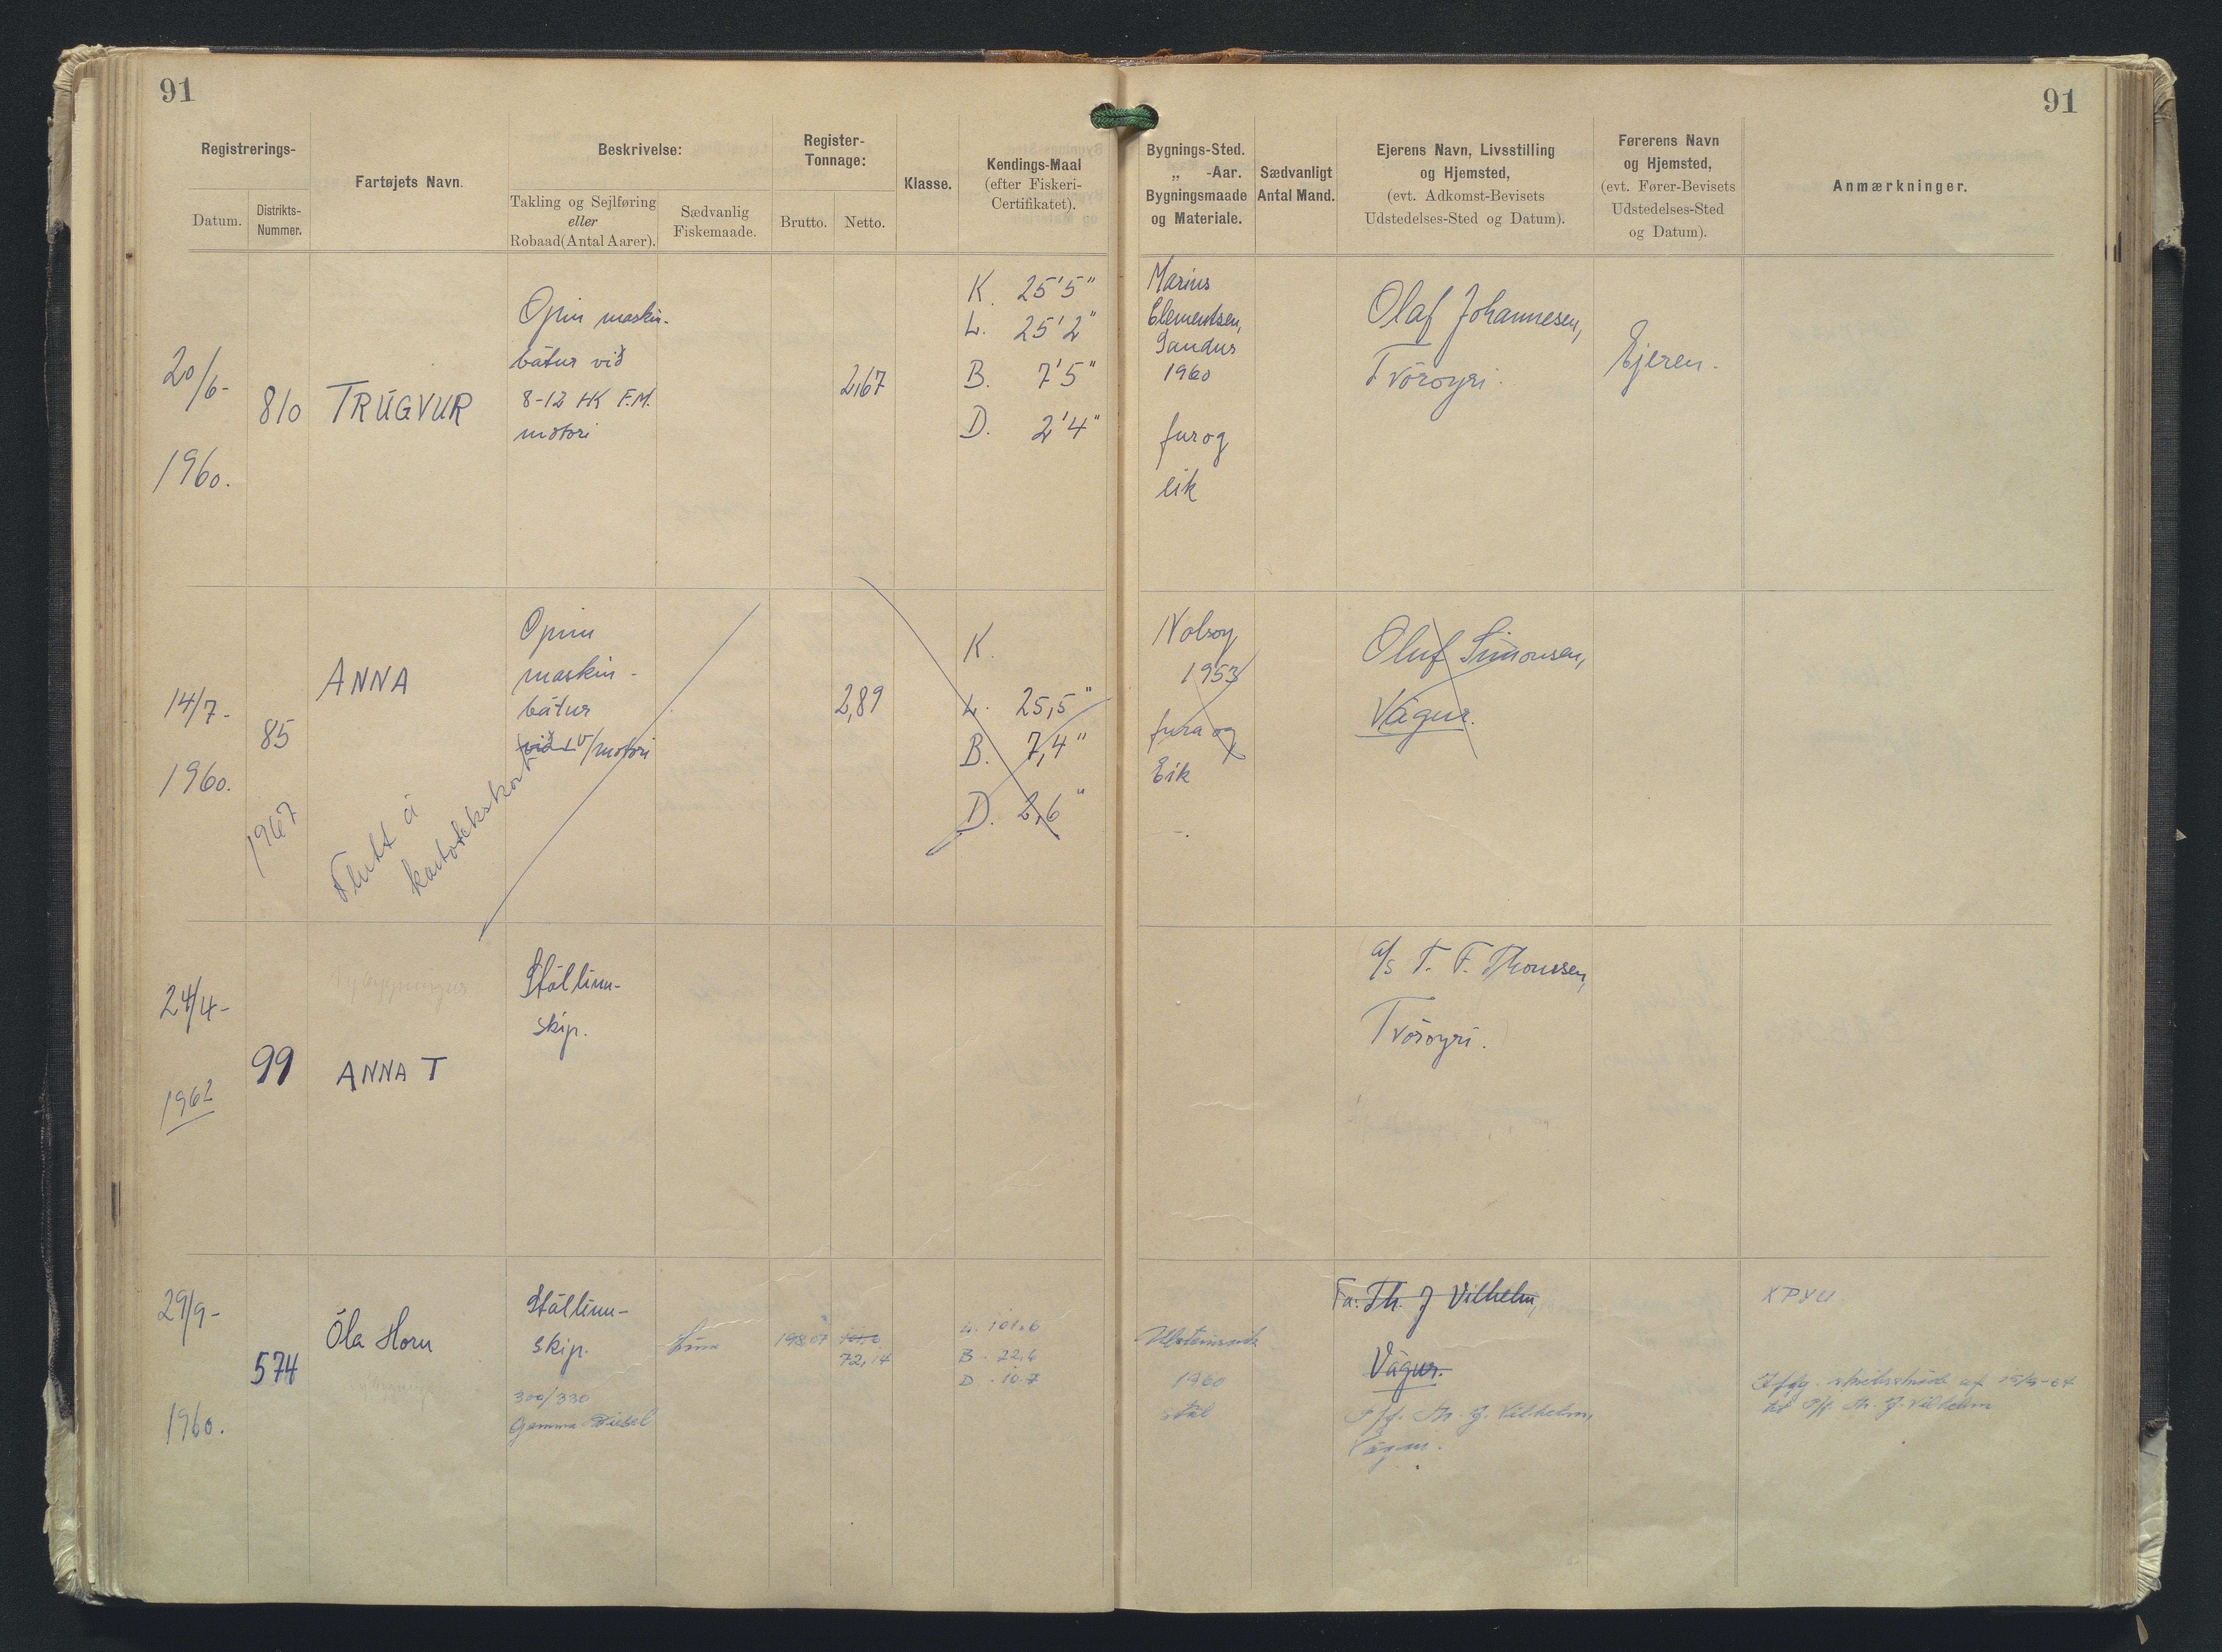 91
91
Registrerings-
Datum.
Distrikts-
Nummer.
Fartøjets Navn.
Beskrivelse:
Takling og Sejlføring
eller
Robaad(Antal Aarer).
Sædvanlig
Fiskemaade.
Register-
Tonnage:
Brutto.
Netto.
Klasse.
Kendings-Maal
(efter Fiskeri-
Certifikatet).
Bygnings-Sted.
„ -Aar.
Bygningsmaade
og Materiale.
Sædvanligt
Antal Mand.
Ejerens Navn, Livsstilling
og Hjemsted,
(evt. Adkomst-Bevisets
Udstedelses-Sted og Datum).
Førerens Navn
og Hjemsted,
(evt. Fører-Bevisets
Udstedelses-Sted
og Datum).
Anmærkninger.
20/6-
1960.
810
TRÚGVUR
Opin maskin-
bátur við
8-12 HK F.M.
motori
2,67
K. 25'5"
L. 25'2"
B. 7'5"
D. 2'4"
Marius
Clementsen,
Sandur
1960
fur og
eik
Olaf Johannesen,
Tvöroyri.
Ejeren.
14/7-
1960.
85
ANNA
1967
Flutt á
kartotekskort
Opin
maskin-
bátur
við v/motori
2,89
K.
L. 25,5"
B. 7,4"
D. 2,6"
Nolsoy
1953
fura og
Eik
Oluf Simonsen,
Vágur.
24/4-
1962
99
Nybygningur
ANNA T
Stállinu-
skip.
a/s T. F. Thomsen,
Tvöroyri.
29/9-
1960.
574
Óla Horn
Stállinu-
skip.
300/330
Gamma Diesel
Línu
198.07
72,14
L. 101.6
B. 22,6
D. 10.7
Ulsteinsvik
1960
stál
Fa: Th. J Vilhelm,
Vágur.
P/f. Th. J. Vilhelm,
Vágur.
XPYU
Ifflg. skeitisskriði af 15/9-64
til P/f. Th. J. Vilhelm